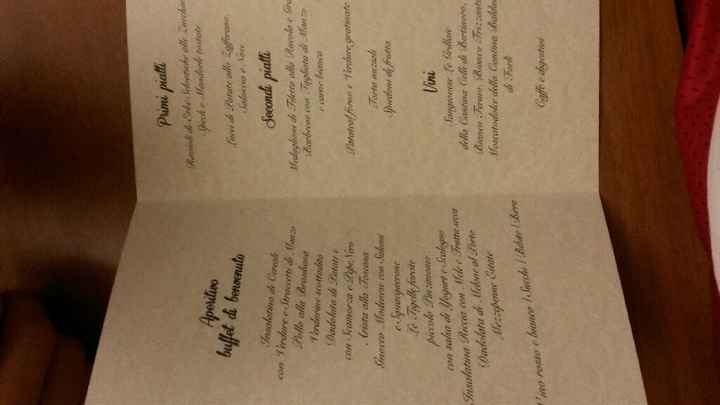 Aperitivo
buffet di benvenuto
Insalatina di Cereali
con Verdure e Straccetti di Manzo
Pollo alla Brasiliana
Verdurine scottadito
Dadolata di Patate e
con Scamorza e Pepe Nero
Arista alla Toscana
Gnocco Modenese con Salumi
e Squacquerone
Le Tigelle farcite
piccolo Pinzimonio
con salsa di Yogurt e Scalogno
Insalatina Riccia con Mele e Frutta secca
Dadolata di Melone al Porto
Mezzepenne Estate
Vino rosso e bianco | Succhi | Bibite | Birra
Primi piatti
Ravioli di Erbe Selvatiche alle Zucchine
Speck e Mandorle tostate
di Patate allo Zafferano,
Salsiccia e Noce
Secondi piatti
Medaglioni di Filetto alla Rucola e
con Tagliata di Manzo
e carne bianca
Patate al forno e Verdure gratinate
Torta nuziale
Spiedoni di frutta
Vini
Sangiovese Le Grillaie
della Cantina Celli di Bertinoro,
Bianco Fermo, Bianco Frizzante
Moscato dolce della Cantina
di Forlì
Caffè e digestivi